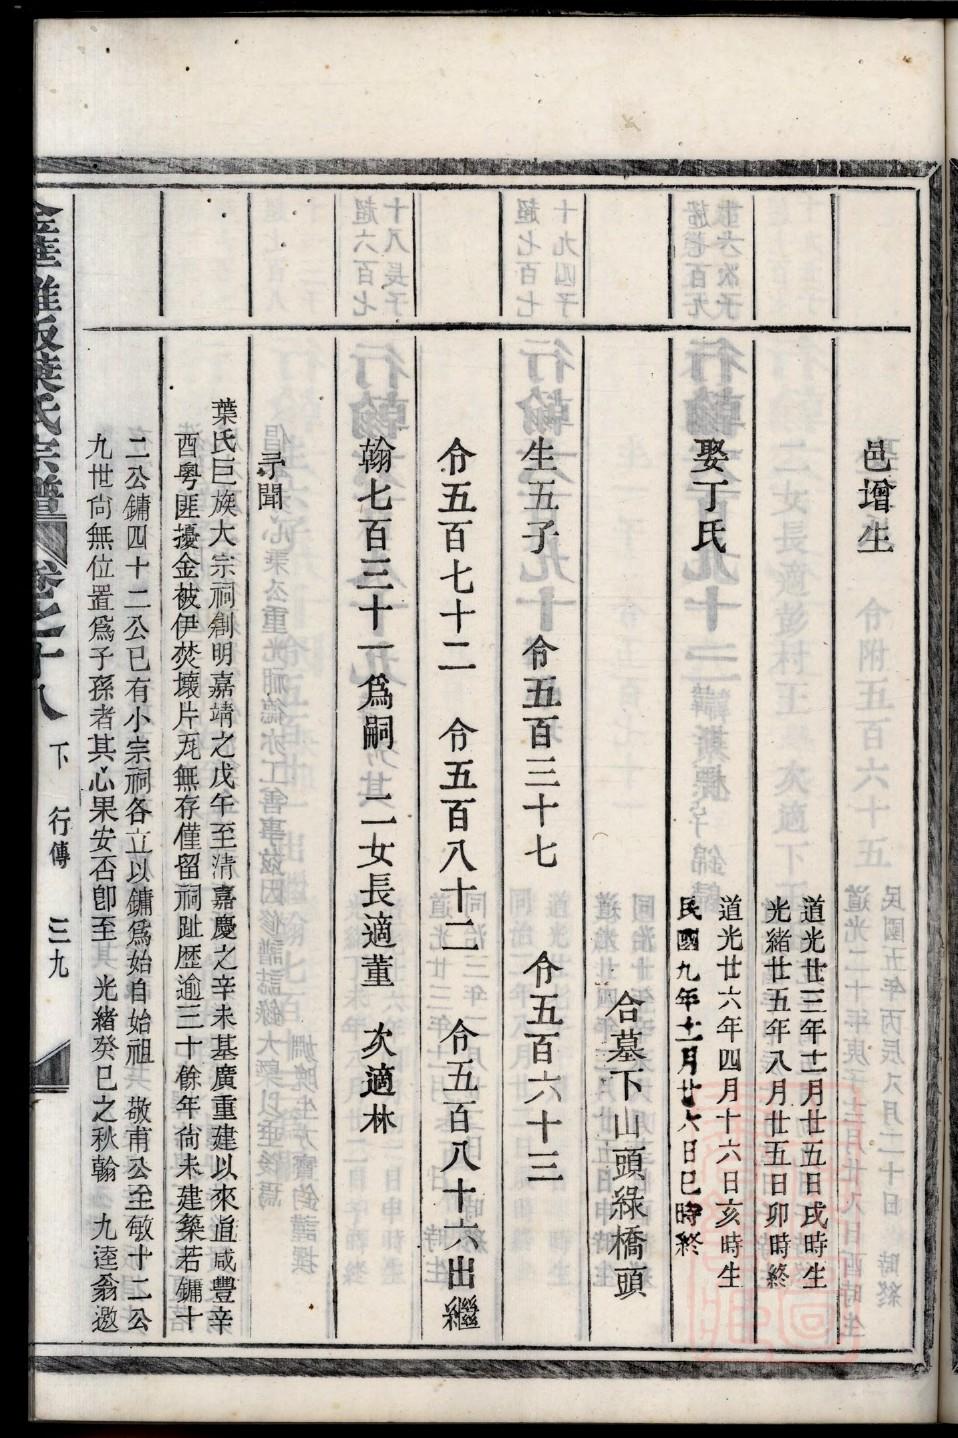 邑增生
道光廿三年十二月廿五日戌時生
光緒廿五年八月廿五日卯時終
娶丁氏
道光廿六年四月十六日亥時生
民國九年十二月廿六日巳時終
合墓下山頭綠橋頭
生五子 令五百三十七 令五百六十三
令五百七十二 令五百八十二 令五百八十六出繼
翰七百三十一爲嗣 二女長適董 次適林
尋聞
葉氏巨族大宗祠創明嘉靖之戊午至清嘉慶之辛未基廣重建以來道咸豐辛
酉粵匪擾金被伊焚壞片瓦無存僅留祠趾歷逾三十餘年尙未建築若鏞十
二公鏞四十二公已有小宗祠各立以鏞爲始自始祖 敬甫公至敏十二公
九世尙無位置爲子孫者其心果安否卽至 光緒癸巳之秋翰 九逵翁邀
葉氏宗譜 卷之十八 下 行傳 三九